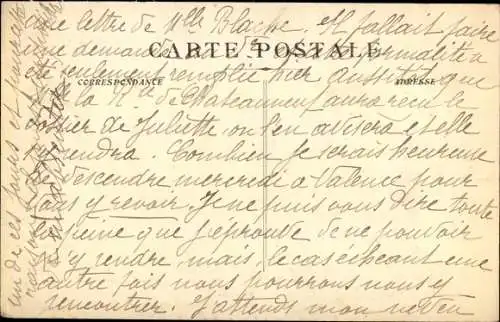 une lettre de Mlle Blache. Il fallait faire
une demande
CARTE POSTALE
formalité a
été seulement remplie hier aussitôt que
CORRESPONDANCE
ADRESSE
la Mlle de Chateauneuf aura reçu le
dossier de Juliette on l'en avisera et elle
Combien je serais heureuse
descendre mercredi à Valence pour
vous y revoir. Je ne puis vous dire toute
peine que j'éprouve de ne pouvoir
m'y rendre, mais, le cas échéant une
autre fois nous pourrons nous y
rencontrer. J'attends mon neveu
un de ces jours et